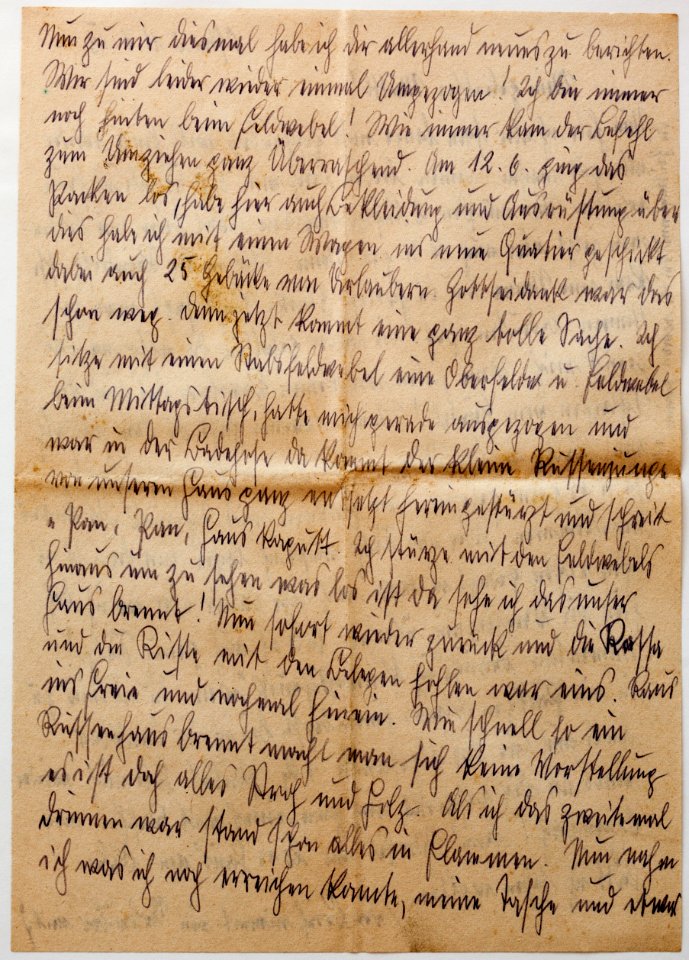 Nun zu mir diesmal habe ich dir allerhand neues zu berichten.
Wir sind leider wieder einmal Umgezogen! Ich bin immer
noch hinten beim Feldwebel! Wie immer kam der Befehl
zum Umziehen ganz Überraschend. Am 12. 6. ging das
Packen los, habe hier auch Bekleidung und Ausrüstung über
dies habe ich mit einen Wagen ins neue Quatier geschickt
dabei auch 25 Gebäcke von Urlaubern. Gottseidank war das
schon weg. denn jetzt kommt eine ganz tolle Sache. Ich
sitze mit einen Stabsfeldwebel eine Oberfeldw u. Feldwebel
beim Mittagstisch, hatte mich gerade ausgezogen und
war in der Badehose da kommt der kleine Russenjunge
von unseren Haus ganz entsetzt hereingestürzt und schreit
" Pan, Pan, Haus kaputt. Ich stürze mit den Feldwebels
hinaus um zu sehen was los ist da sehe ich das unser
Haus brennt! Nun sofort wieder zurück und die Kassa
und die Kiste mit den Belegen hohlen war eins. Raus
ins Freie und nochmal hinein. Wie schnell so ein
Russenhaus brennt macht man sich keine Vorstellung
es ist doch alles Stroh und Holz. Als ich das zweitemal
drinnen war stand schon alles in Flammen. Nun nahm
ich was ich noch erreichen konnte, meine Tasche und etwas